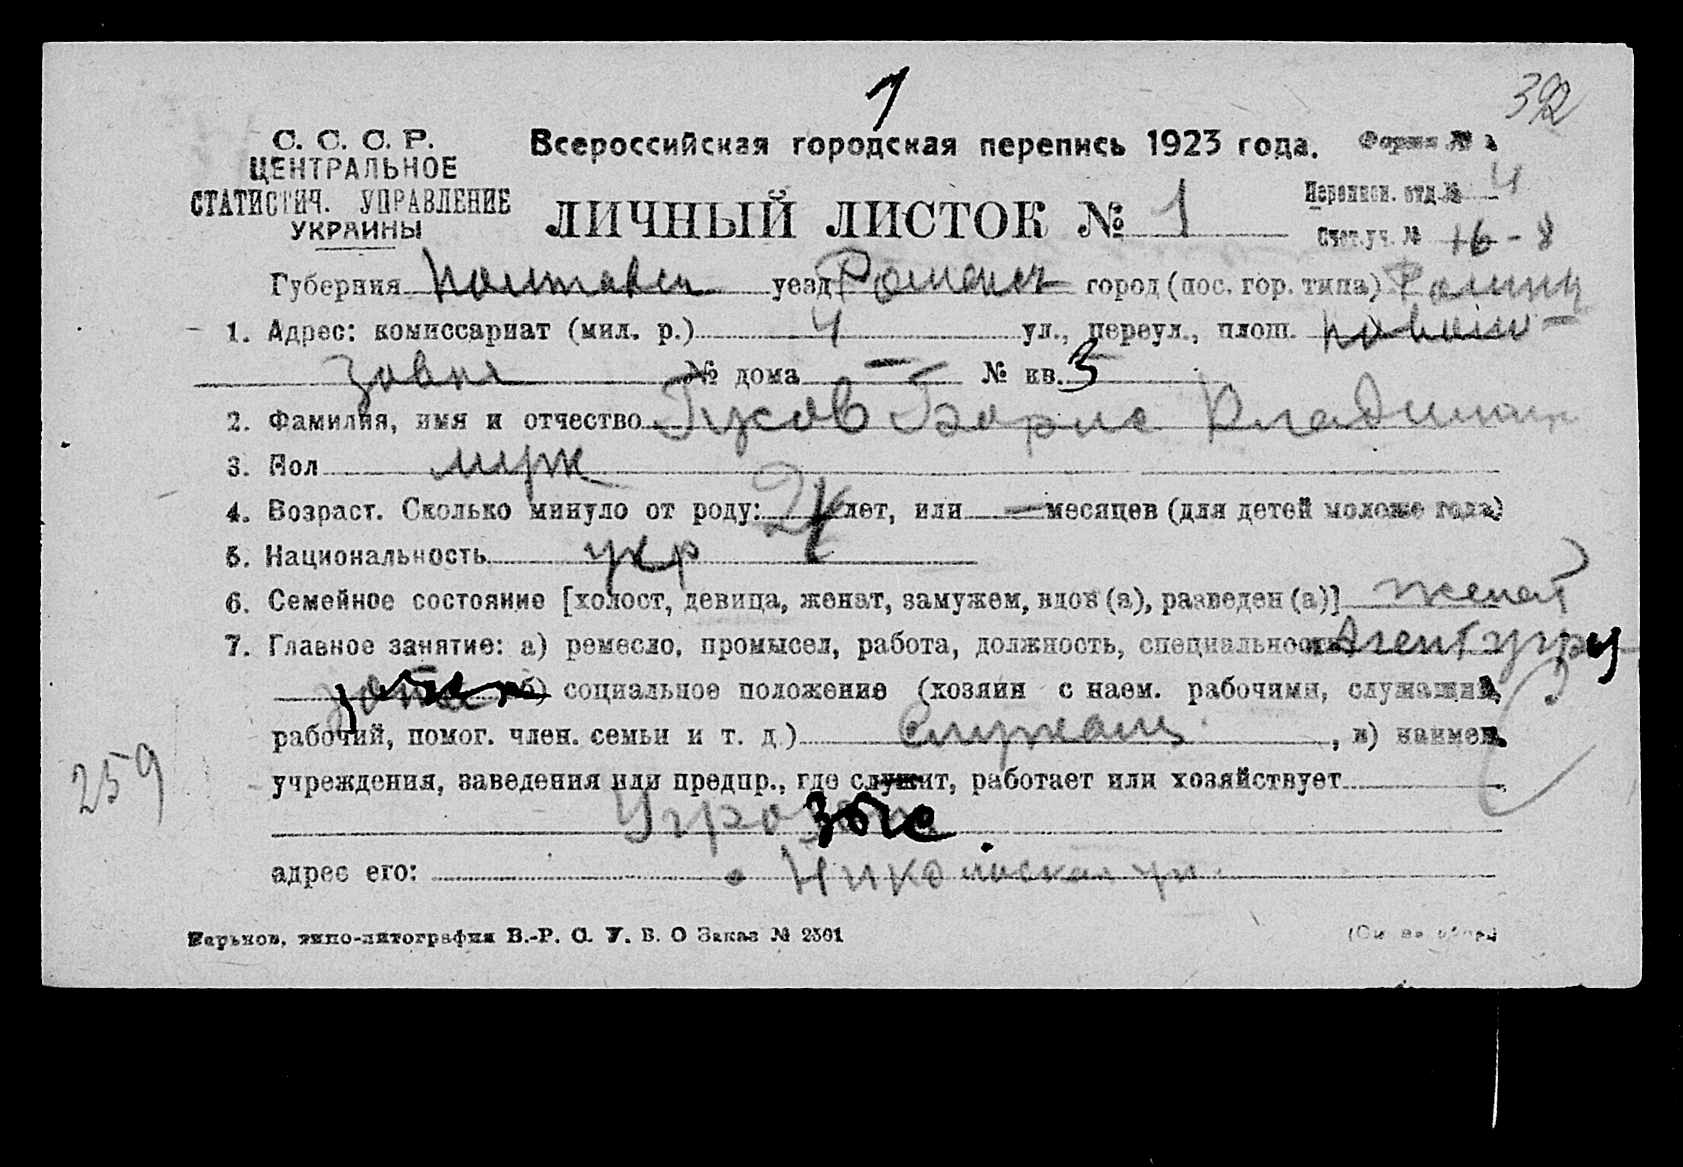 1
392
С. С. С. Р.
ЦЕНТРАЛЬНОЕ
СТАТИСТИЧ. УПРАВЛЕНИЕ
УКРАИНЫ
Всероссийская городская перепись 1923 года.
Форма №
Переписн. отд. № 4
ЛИЧНЫЙ ЛИСТОК № 1
Счет. уч. № 16-8
Губерния Полтавск уезд город (пос. гор. типа) Ромны
1. Адрес: комиссариат (мил. р.) 4 ул., переул., площ.
№ дома — № кв. 3
2. Фамилия, имя и отчество Борис Владимир
3. Пол муж
4. Возраст. Сколько минуло от роду: лет, или — месяцев (для детей моложе года)
5. Национальность укр
6. Семейное состояние [холост, девица, женат, замужем, вдов (а), разведен (а)] женат
7. Главное занятие: а) ремесло, промысел, работа, должность, специальность Агент
б) социальное положение (хозяин с наем. рабочими, служащий,
рабочий, помог. член. семьи и т. д.) Служащ , в) наимен.
259
учреждения, заведения или предпр., где служит, работает или хозяйствует
адрес его: Никольская ул.
Харьков, типо-литография В.-Р. С. У. В. О Заказ № 2501